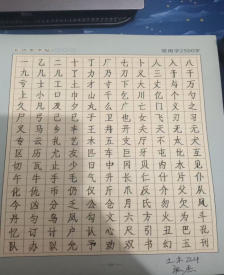 常用字2500字
一乙二十丁厂七卜人入八
九几儿了力乃刀又三于干
亏士工土才寸下大丈与万
上小口巾山千乞川亿个勺
久凡及夕丸么广亡门义之
尸弓己已子卫也女飞刃习
叉马乡丰王井开夫天无元
专云扎艺木五支厅不太犬
区历尤友匹车巨牙屯比互
切瓦止少日中冈贝内水见
午牛手毛气升长仁什片仆
化仇币仍仅斤爪反介父从
今凶分乏公仓月氏勿欠风
丹匀乌凤勾文六方火为斗
忆订计户认心尺引丑巴孔
队办以允予劝双书幻刊